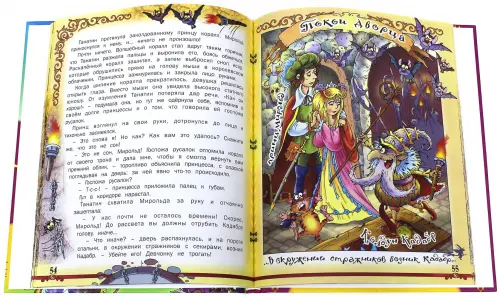 Танатин протянула заколдованному принцу коралл. Мирольд
прикоснулся к нему, и... ничего не произошло!
Почти ничего. Волшебный коралл стал вдруг таким горячим,
что Танатин разжала пальцы и выронила его, боясь обжечься.
Раскалённый коралл зашипел, а затем выбросил сноп искр,
которые обрушились прямо на голову мыши в королевском
облачении. Принцесса зажмурилась и закрыла лицо руками.
Когда шипение коралла прекратилось, девушка решилась
открыть глаза. Вместо мыши она увидела высокого статного
юношу. От изумления Танатин потеряла дар речи. «Как он
хорош!» – подумала она, но тут же одёрнула себя, вспомнив о
своём долге принцессы и о том, что сотворила ей госпожа
русалок.
Принц взглянул на свои руки, дотронулся до лица и
тихонько засмеялся.
– Это снова я! Но как? Как вам это удалось? Скажите
же, что это не сон!
– Это не сон, Мирольд! Госпожа русалок отломила коралл
от своего трона и дала мне, чтобы я смогла вернуть вам
прежний облик, – торопливо объяснила принцесса, с опаской
поглядывая на дверь: за ней явно что-то происходило.
– Госпожа русалок?
– Т-с-с! – принцесса приложила палец к губам.
Пол в коридоре нарастал.
Танатин схватила Мирольда за руку и отчаянно
зашептала:
– У нас почти не осталось времени! Скорее,
Мирольд! До рассвета вы должны отрубить Кадабру
голову, иначе...
– Что иначе? – дверь распахнулась, и на пороге
спальни, в окружении стражников с секирами, возник
Кадабр. – Убейте его! Девчонку не трогать!
54
Покои дворца
Ползун Кадабр
...В окружении стражников возник Кадабр...
55